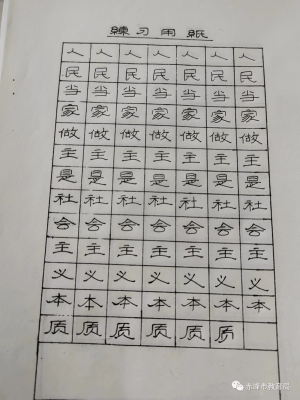 練习用紙
人人人人人人人
民民民民民民民
当当当当当当当
家家家家家家家
做做做做做做做
主主主主主主主
是是是是是是是
社社社社社社社
会会会会会会会
主主主主主主主
义义义义义义义
本本本本本本本
质质质质质质
赤峰市教育局